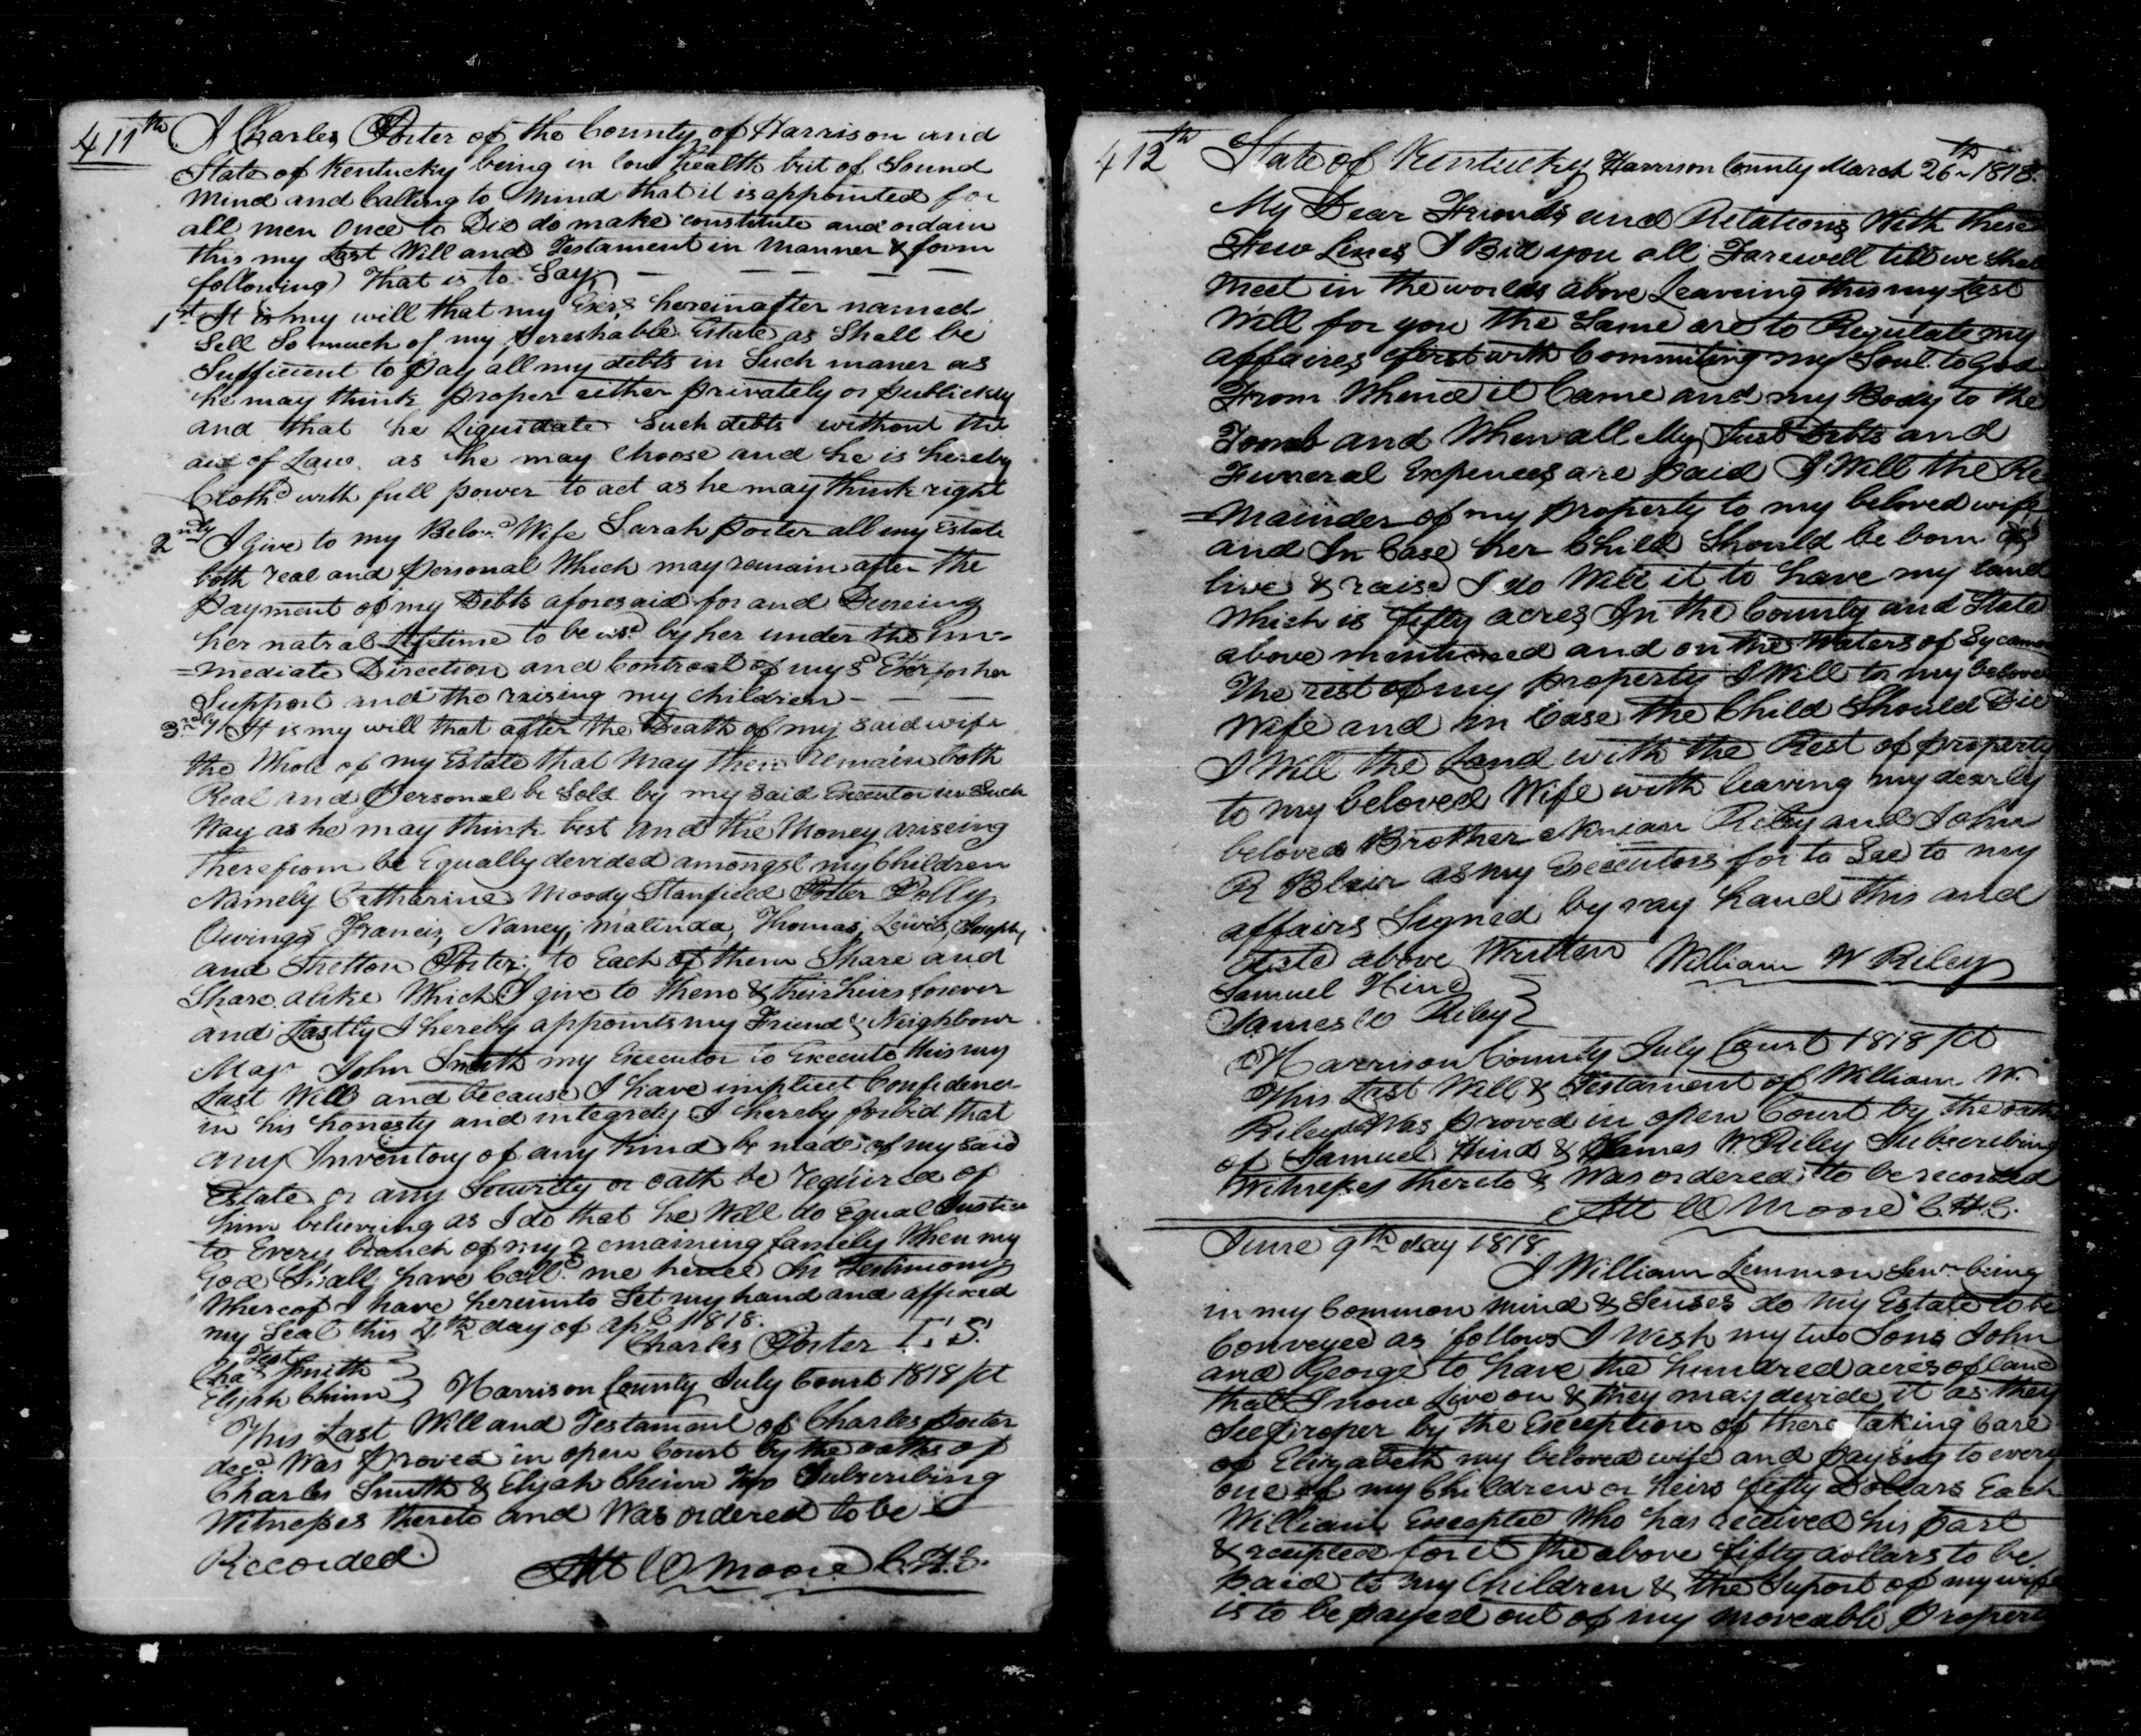 411th I Charles Porter of the County of Harrison and
State of Kentucky being in low health but of Sound
Mind and Calling to Mind that it is appointed for
all men Once to Die do make constitute and ordain
this my Last Will and Testament in Manner & form
following That is to Say, — — — —
1st It is my will that my Exer hereinafter named
Sell So much of my pereshable Estate as Shall be
Sufficient to pay all my debts in Such maner as
he may think proper either privately or publickly
and that he Liquidate Such debts without the
aid of Law. as he may Choose and he is hereby
Cloth'd with full power to act as he may think right
2ndly I Give to my Belov.d Wife Sarah Porter all my Estate
both real and personal Which may remain after the
payment of my Debts aforesaid for and Dureing
her natral Lifetime to be usd by her under the Im-
=mediate Direction and Controal of my sd Exer for her
Support and the raising my children — —
3rdly It is my will that after the Death of my said wife
the Whole of my Estate that May then remain both
Real and personal be Sold by my said Executor in Such
Way as he may think best and the Money ariseing
therefrom be Equally devided amongst my Children
Namely Catharine Moody Stanfield Porter Polly
Owings Francis, Nancy, malinda, Thomas, Lewis, Joseph,
and Shelton Porter, to Each of them Share and
Share alike Which I give to them & their heirs forever
and Lastly I hereby appoints my Friend & Neighbour
Majr John Smith my Executor to Execute this my
Last Will and because I have implicit Confidence
in his honesty and integrety I hereby forbid that
any Inventory of any kind be made of my said
Estate or any Security or oath be required of
him believeing as I do that he Will do Equal Justice
to Every branch of my remaining family When my
God Shall have Call.d me hence In Testimony
Whereof I have hereunto Set my hand and affixed
my Seal this 4th day of Apl 1818.
Charles Porter L S
Test
Chas Smith
Elijah Chinn } Harrison County July Court 1818 Sct
This Last Will and Testament of Charles Porter
decd Was proved in open Court by the oaths of
Charles Smith & Elijah Chinn two Subscribing
Witnesses thereto and Was ordered to be
Recorded.
Att W Moore C.H.C.
412th State of Kentucky Harrison County March 26th 1818.
My Dear Friends and Relations With these
Few Lines I Bid you all Farewell till we Shall
Meet in the worlds above Leaveing this my Last
Will for you the Same are to Regulate my
affaires first with Commiting my Soul to God
From Whence it Came and my Body to the
Tomb and When all My Just debts and
Funeral Expences are paid I Will the Re
=mainder of my property to my beloved wife
and In Case her Child Should be born
live & raise I do Will it to have my land
Which is fifty acres In the County and State
above mentioned and on the Waters of Sycamo
The rest of my property I Will to my beloved
Wife and in Case the Child Should Die
I Will the Land with the Rest of property
to my beloved Wife with leaving my dearly
beloved Brother Ninian Riley and John
R Blair as my Executors for to See to my
affairs Signed by my hand this and
date above Written William W Riley
Samuel Hind
James W Riley }
Harrison County July Court 1818 Sct
This Last Will & Testament of William W.
Riley Was proved in open Court by the oath
of Samuel Hind & James W. Riley Subscribing
Witnesses thereto & Was ordered to be recorded
Att W Moore C.H.C.
June 9th day 1818
I William Lemmon Senr being
in my Common mind & Senses do my Estate to be
Conveyed as follows I Wish my two Sons John
and George to have the hundred acres of land
that I now Live on & they may devide it as they
See proper by the Exception of there taking Care
of Elizabeth my beloved wife and paying to every
one of my Children or heirs fifty Dollars Each
William Excepted Who has received his part
& receipted for it the above fifty dollars to be
paid to my Children & the Suport of my wife
is to be payed out of my moveable Property